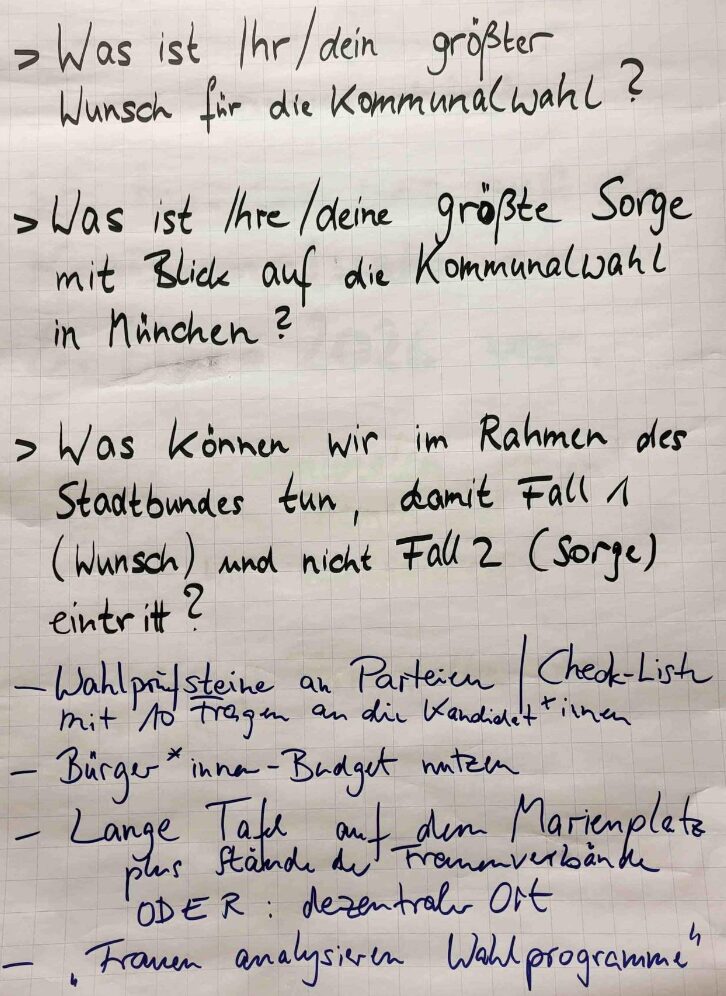 > Was ist Ihr/dein größter
Wunsch für die Kommunalwahl?
> Was ist Ihre/deine größte Sorge
mit Blick auf die Kommunalwahl
in München?
> Was können wir im Rahmen des
Stadtbundes tun, damit Fall 1
(Wunsch) und nicht Fall 2 (Sorge)
eintritt?
– Wahlprüfsteine an Parteien / Check-Liste
mit 10 Fragen an die Kandidat*innen
– Bürger*innen-Budget nutzen
– Lange Tafel auf dem Marienplatz
plus Stände der Frauenverbände
ODER: dezentraler Ort
– „Frauen analysieren Wahlprogramme"